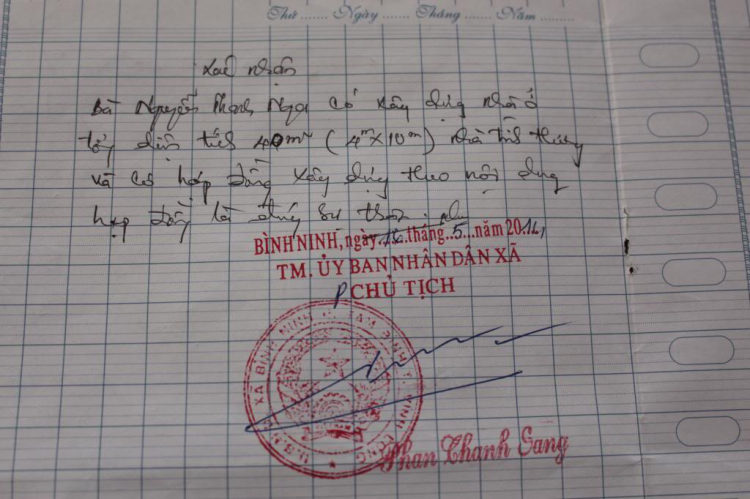 Thứ ...... Ngày ...... Tháng ...... Năm ......
Xác nhận
Bà Nguyễn Thanh Nga có xây dựng nhà ở
tổng diện tích 40m² (4m x 10m) nhà tình thương
và có hợp đồng xây dựng theo nội dung
hợp đồng là đúng sự thật.
BÌNH NINH, ngày 12 tháng 5 năm 2014
TM. ỦY BAN NHÂN DÂN XÃ
P CHỦ TỊCH
XÃ BÌNH NINH
Phan Thanh Sang